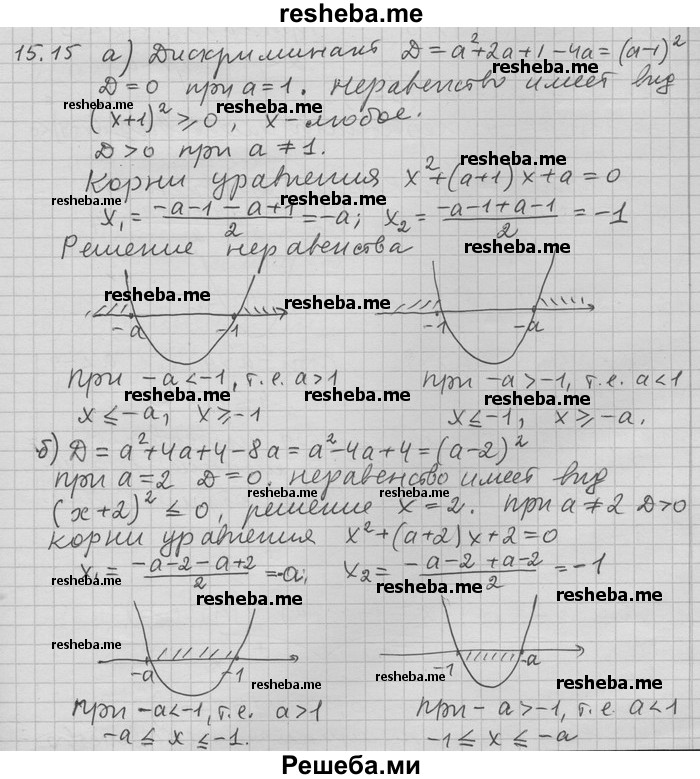 resheba.me
15.15 а) Дискриминант D = a²+2a+1-4a = (a-1)²
D=0 при a=1. Неравенство имеет вид
resheba.me resheba.me resheba.me
(x+1)² ⩾ 0, x - любое.
D>0 при a ≠ 1.
resheba.me
Корни уравнения x²+(a+1)x+a=0
resheba.me
x₁ = (-a-1-a+1)/2 = -a; x₂ = (-a-1+a-1)/2 = -1
Решение неравенства
resheba.me
resheba.me resheba.me resheba.me
-a -1 -1 -a
при -a<-1, т.е. a>1 при -a>-1, т.е. a<1
resheba.me resheba.me
x ⩽ -a, x ⩾ -1 x ⩽ -1, x ⩾ -a.
б) D = a²+4a+4-8a = a²-4a+4 = (a-2)²
resheba.me resheba.me
при a=2 D=0. неравенство имеет вид
resheba.me
(x+2)² ⩽ 0, решение x=2. при a≠2 D>0
resheba.me
корни уравнения x²+(a+2)x+2=0
x₁ = (-a-2-a+2)/2 = -a; x₂ = (-a-2+a-2)/2 = -1
resheba.me resheba.me
resheba.me
resheba.me resheba.me
-a -1 -1 -a
resheba.me resheba.me
при -a<-1, т.е. a>1 при -a>-1, т.е. a<1
resheba.me resheba.me
-a ⩽ x ⩽ -1. -1 ⩽ x ⩽ -a
Решеба.ми